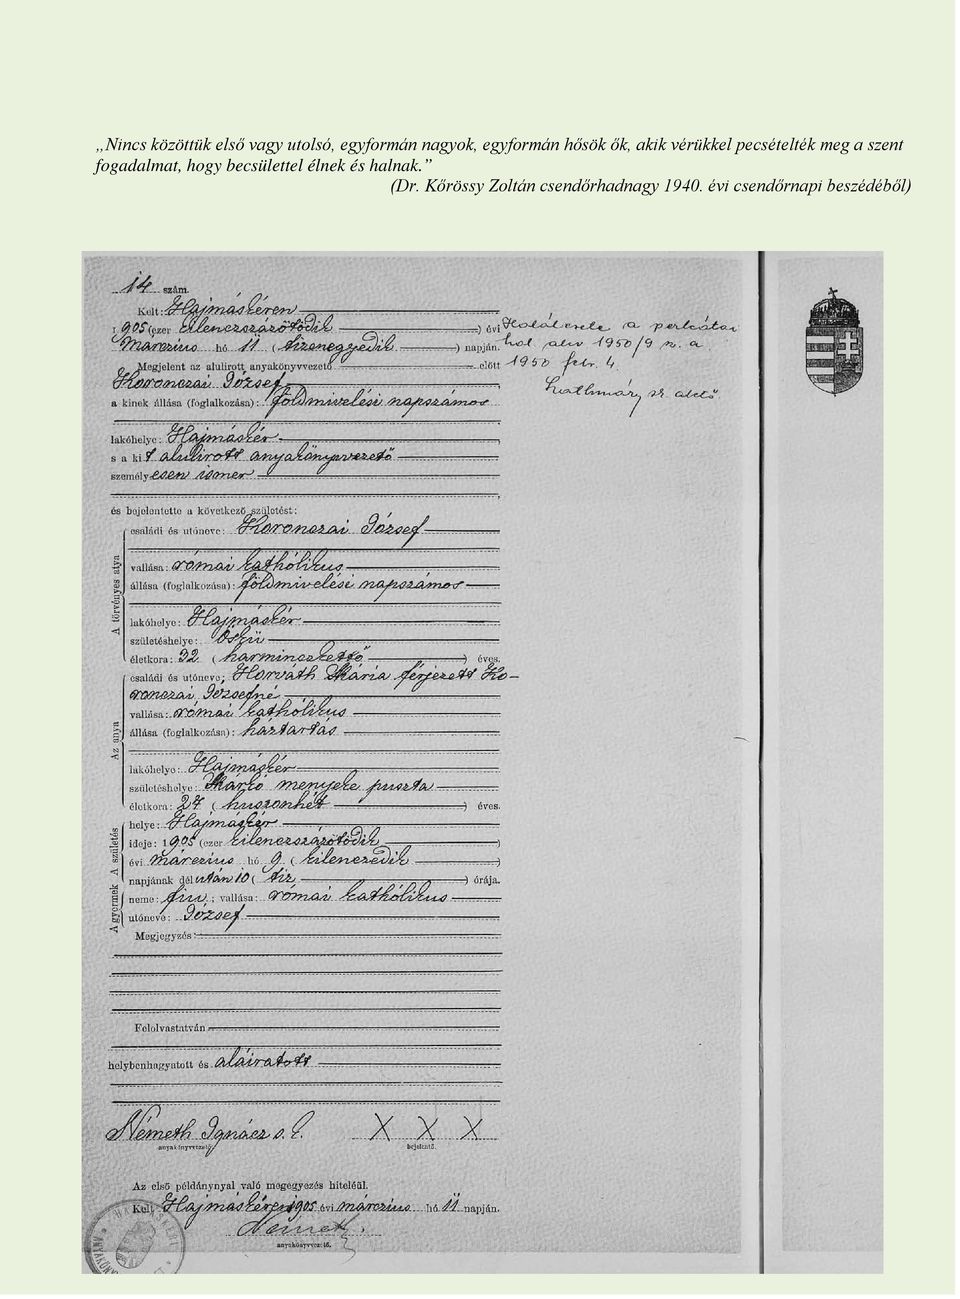 „Nincs közöttük első vagy utolsó, egyformán nagyok, egyformán hősök ők, akik vérükkel pecsételték meg a szent
fogadalmat, hogy becsülettel élnek és halnak.”
(Dr. Kőrössy Zoltán csendőrhadnagy 1940. évi csendőrnapi beszédéből)
14 szám.
Kelt: Hajmáskéren
1905 (ezer kilenczszázötödik ) évi
Márczius hó 11 (tizenegyedik ) napján.
Megjelent az alulirott anyakönyvvezető előtt
Koronczai József
a kinek állása (foglalkozása): földmivelési napszámos
lakóhelye: Hajmáskér
s a kit alulirott anyakönyvvezető
személyesen ismer
és bejelentette a következő születést:
A törvényes atya
családi és utóneve: Koronczai József
vallása: római katholikus
állása (foglalkozása): földmivelési napszámos
lakóhelye: Hajmáskér
születéshelye: Öskü
életkora: 32 (harminczkettő ) éves.
Az anya
családi és utóneve: Horváth Mária férjezett Ko-
ronczai Józsefné
vallása: római katholikus
állása (foglalkozása): háztartás
lakóhelye: Hajmáskér
születéshelye: menyeke puszta
életkora: 27 (huszonhét ) éves.
A gyermek A születés
helye: Hajmáskér
ideje: 1905 (ezer kilenczszázötödik )
évi márczius hó 9 (kilenczedik )
napjának délután 10 (tiz ) órája.
neme: fiu; vallása: római katholikus
utóneve: József
Megjegyzés:
Felolvastatván
helybenhagyatott és aláiratott
Németh Ignácz s. k. X X X
anyakönyvvezető. bejelentő.
Az első példánynyal való megegyezés hiteléül.
Kelt Hajmáskéren 1905 évi márczius hó 11 napján.
Németh
anyakönyvvezető.
Halálesete a perkátai
hol. akv 1950/9 n. a.
1950 febr. 4.